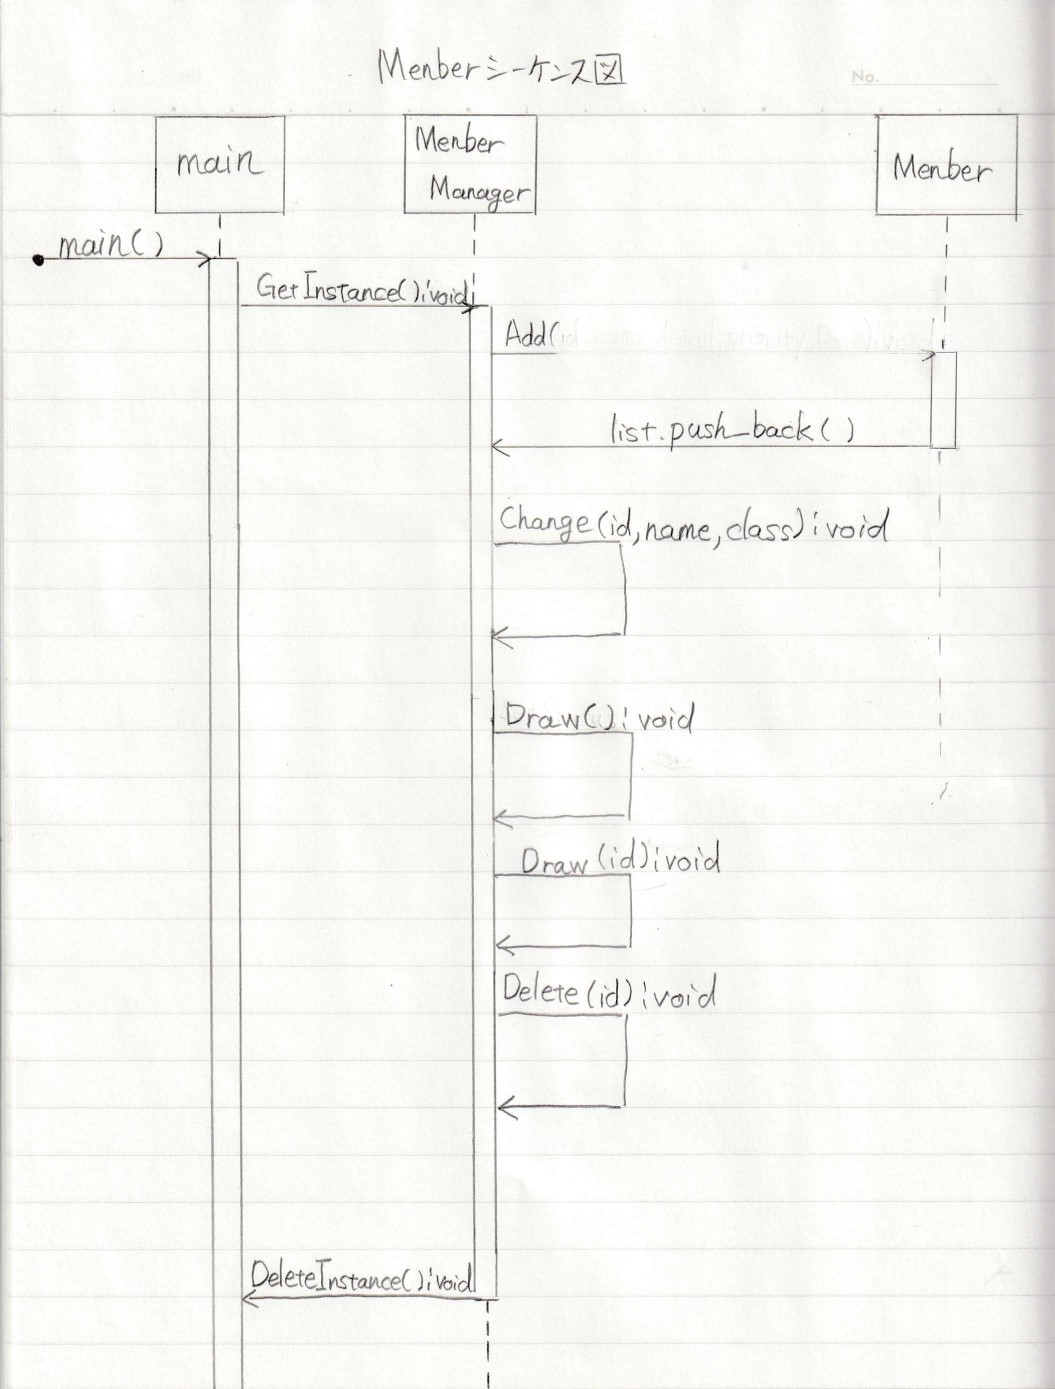 Menberシーケンス図
No.
main
Menber
Manager
Menber
main()
GetInstance():void
Add(id
list.push_back()
Change(id,name,class):void
Draw():void
Draw(id):void
Delete(id):void
DeleteInstance():void